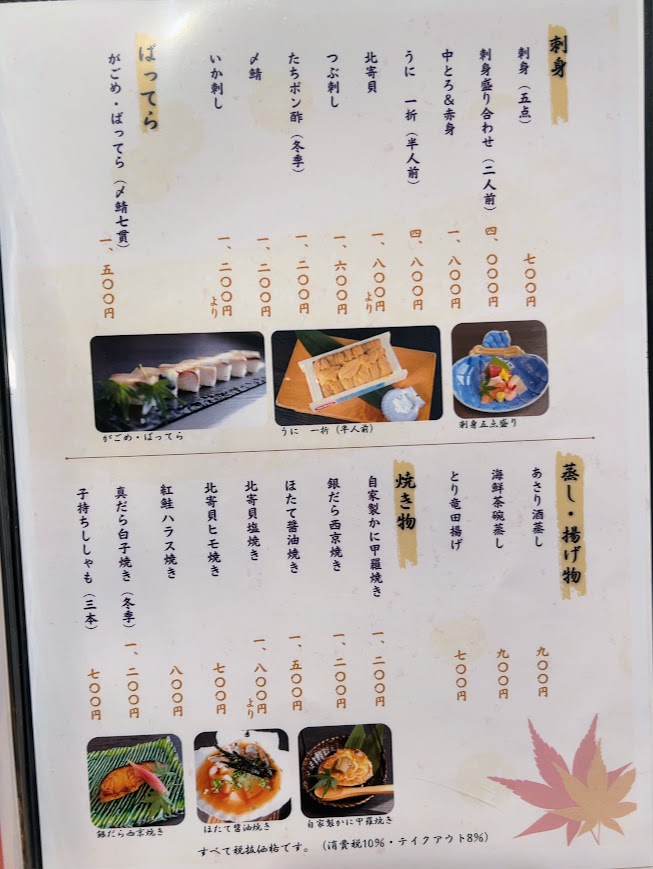 刺身
刺身（五点）
七〇〇円
刺身盛り合わせ（二人前）
四、〇〇〇円
中とろ&赤身
一、八〇〇円
うに　一折（半人前）
四、八〇〇円
北寄貝
一、八〇〇円より
つぶ刺し
一、六〇〇円
たちポン酢（冬季）
一、二〇〇円
〆鯖
一、二〇〇円
いか刺し
一、二〇〇円より
ばってら
がごめ・ばってら（〆鯖七貫）
一、五〇〇円
がごめ・ばってら
うに　一折（半人前）
刺身五点盛り
蒸し・揚げ物
あさり酒蒸し
九〇〇円
海鮮茶碗蒸し
九〇〇円
とり竜田揚げ
七〇〇円
焼き物
自家製かに甲羅焼き
一、二〇〇円
銀だら西京焼き
一、二〇〇円
ほたて醤油焼き
一、五〇〇円
北寄貝塩焼き
一、八〇〇円より
北寄貝ヒモ焼き
七〇〇円
紅鮭ハラス焼き
八〇〇円
真だら白子焼き（冬季）
一、二〇〇円
子持ちししゃも（三本）
七〇〇円
銀だら西京焼き
ほたて醤油焼き
自家製かに甲羅焼き
すべて税抜価格です。（消費税10%・テイクアウト8%）